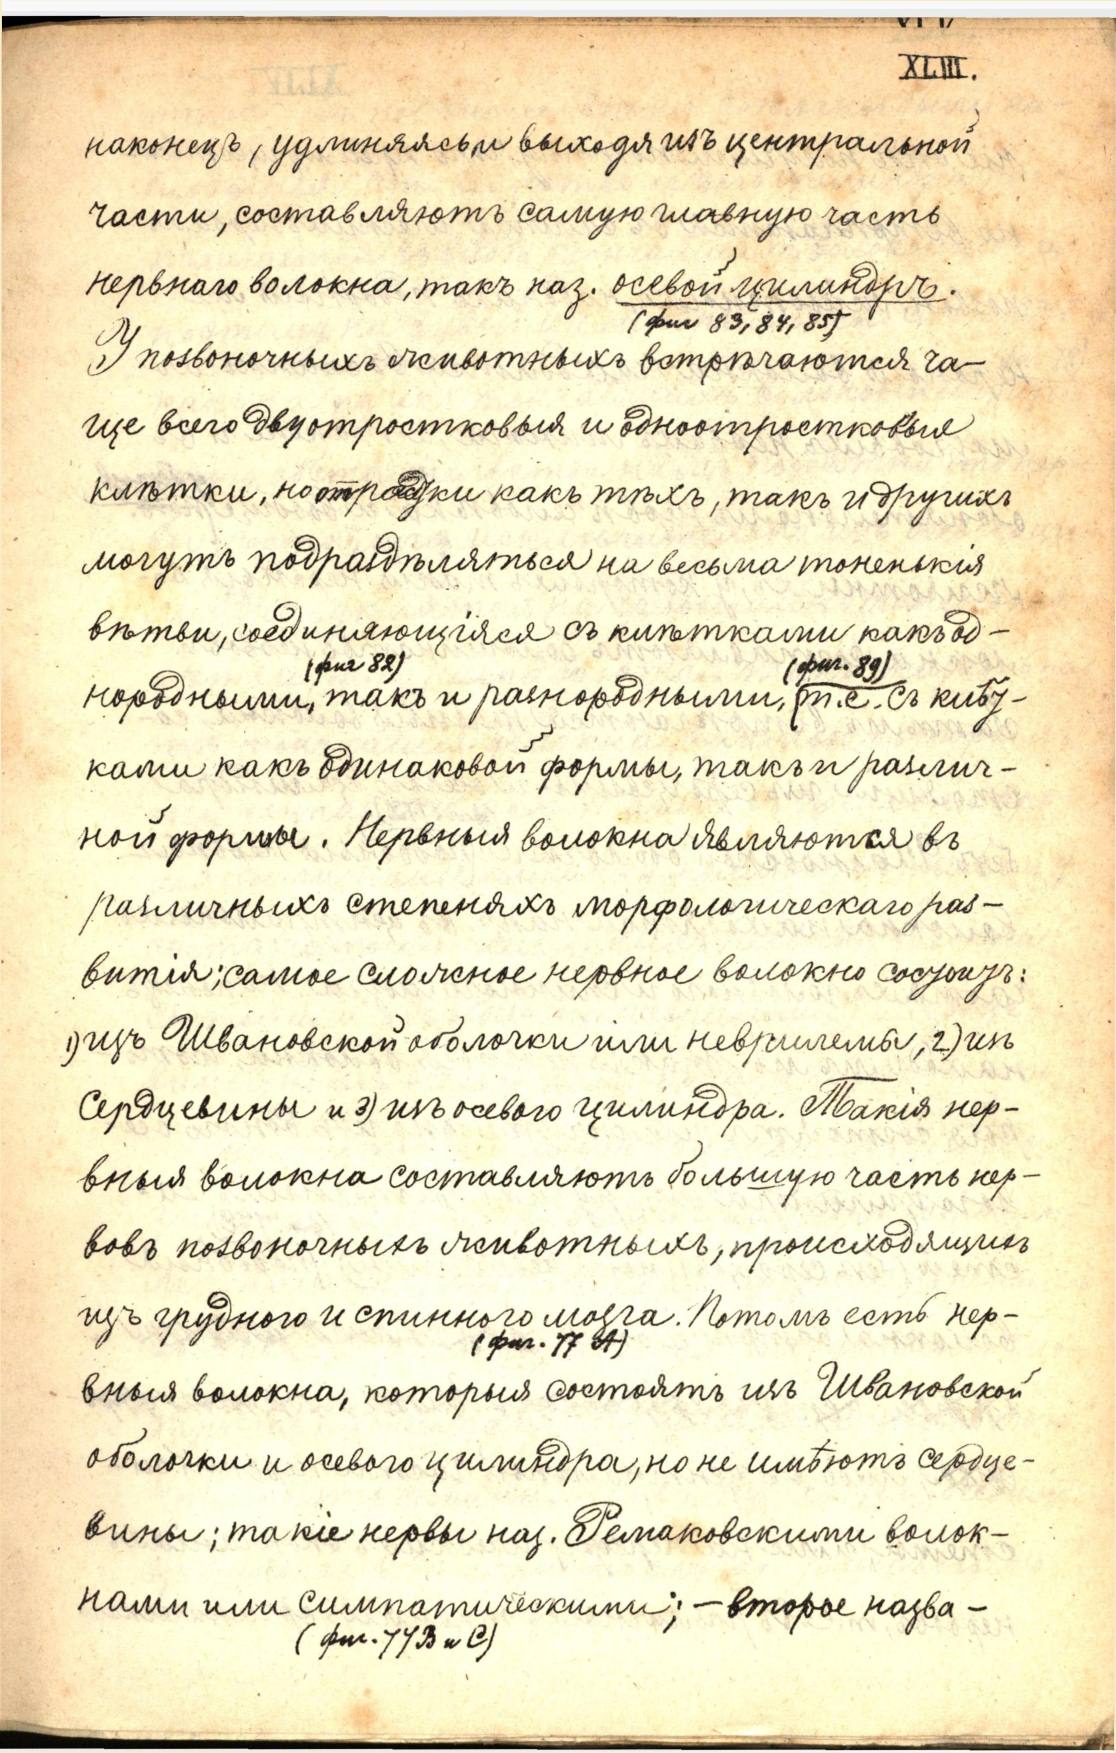 XLIII.
наконецъ, удлиняясь и выходя изъ центральной
части, составляютъ самую главную часть
нервнаго волокна, такъ наз. осевой цилиндръ.
(фиг 83, 84, 85)
У позвоночныхъ животныхъ встрѣчаются ча-
ще всего двуотростковыя и одноотростковыя
клѣтки, но отростки какъ тѣхъ, такъ и другихъ
могутъ подраздѣляться на весьма тоненькія
вѣтви, соединяющіяся съ клѣтками какъ од-
(фиг 82) (фиг. 89)
нородными, такъ и разнородными, т.е. съ клѣт-
ками какъ одинаковой формы, такъ и различ-
ной формы. Нервныя волокна являются въ
различныхъ степеняхъ морфологическаго раз-
витія; самое сложное нервное волокно состоитъ:
1) изъ Швановской оболочки или неврилемы, 2) изъ
Сердцевины и 3) изъ осевого цилиндра. Такія нер-
вныя волокна составляютъ большую часть нер-
вовъ позвоночныхъ животныхъ, происходящихъ
изъ грудного и спинного мозга. Потомъ есть нер-
(фиг. 77 А)
вныя волокна, которыя состоятъ изъ Швановской
оболочки и осевого цилиндра, но не имѣютъ сердце-
вины; такіе нервы наз. Ремаковскими волок-
нами или симпатическими; — второе назва-
(фиг. 77 В и С)